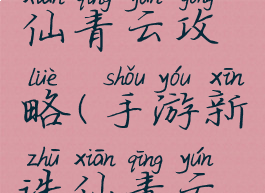 xiān qīng yún gōng
仙青云攻
lüè shǒu yóu xīn
略(手游新
zhū xiān qīng yún
诛仙青云